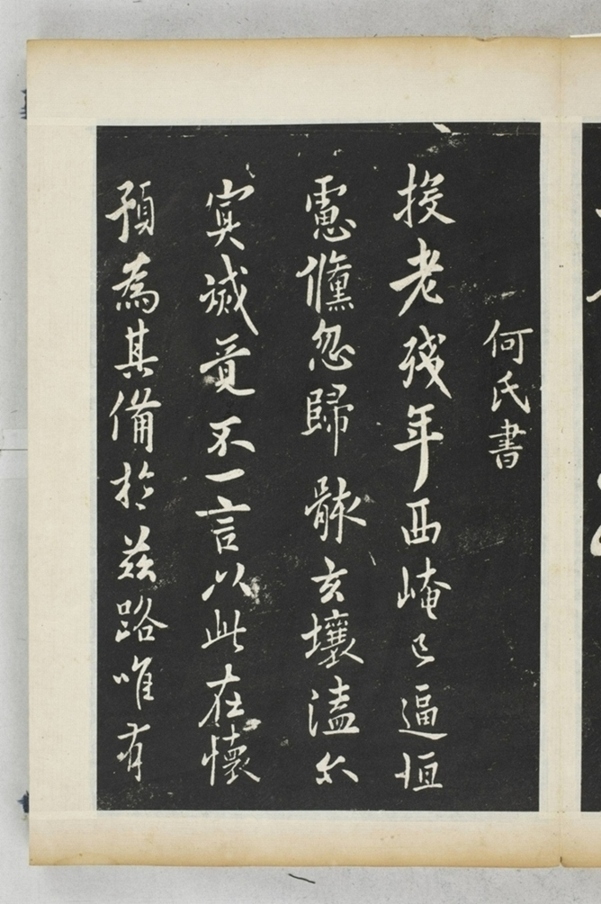 何氏書
投老殘年西崦已逼恒
慮儻忽歸骸玄壤溘尒
冥滅竟不一言以此在懷
預為其備於茲路唯有